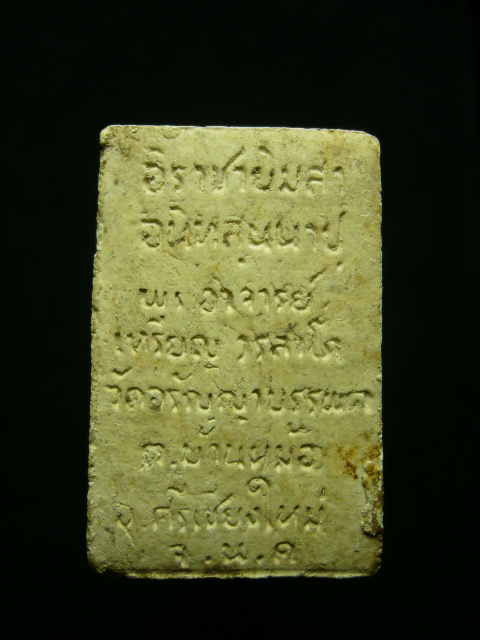 อิราชายิมสา
พระอาจารย์
เหรียญ วรลาโภ
วัดอรัญญาบรรพต
ต.บ้านหม้อ
อ.ศรีเชียงใหม่
จ.น.ค